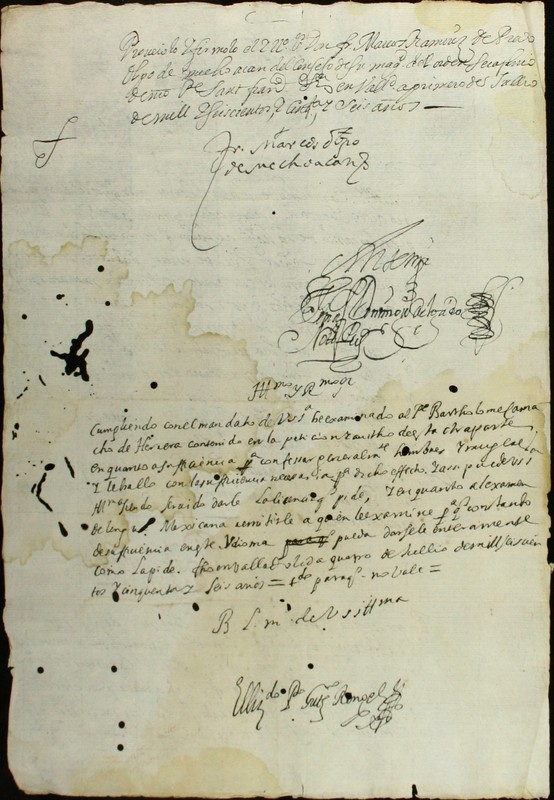 Proveiolo y firmolo el Yllmo Sr Don fr Marcos Ramirez de Prado
obpo de mechoacan del Consejo de su magd del orden Seraphico
de nro Pe Sant franco en Valld a primero de Jullio
de mill y seiscientos y cinqta y seis años
fr. Marcos obpo
de mechoacan
Ante mi
Simon
Notrio
Illmo y Rmo Sor
Cumpliendo con el mandato de V.S.a he examinado al Pe Bartholome Cama
cho de Herrera contenido en la peticion escritto desta otra parte
en quanto a su suffiencia pa confessar generalmte hombres y mugeres
y le hallo con la suffiencia necesaria pa dicho effecto. y assi puede V.S.
Illma siendo servido darle la licencia q pide, y en quanto al examen
de lengua Mexicana remitirle a quien le examine pa q constando
de su suffiencia en este Ydioma pueda darsele enteramente
como la pide. ffho en Valladolid a quatro de Jullio de mill y seiscien
tos y cinquenta y seis años = tdo para q no vale =
B L mo de V.S. Illma
Ellizdo Po Gutz Rongel